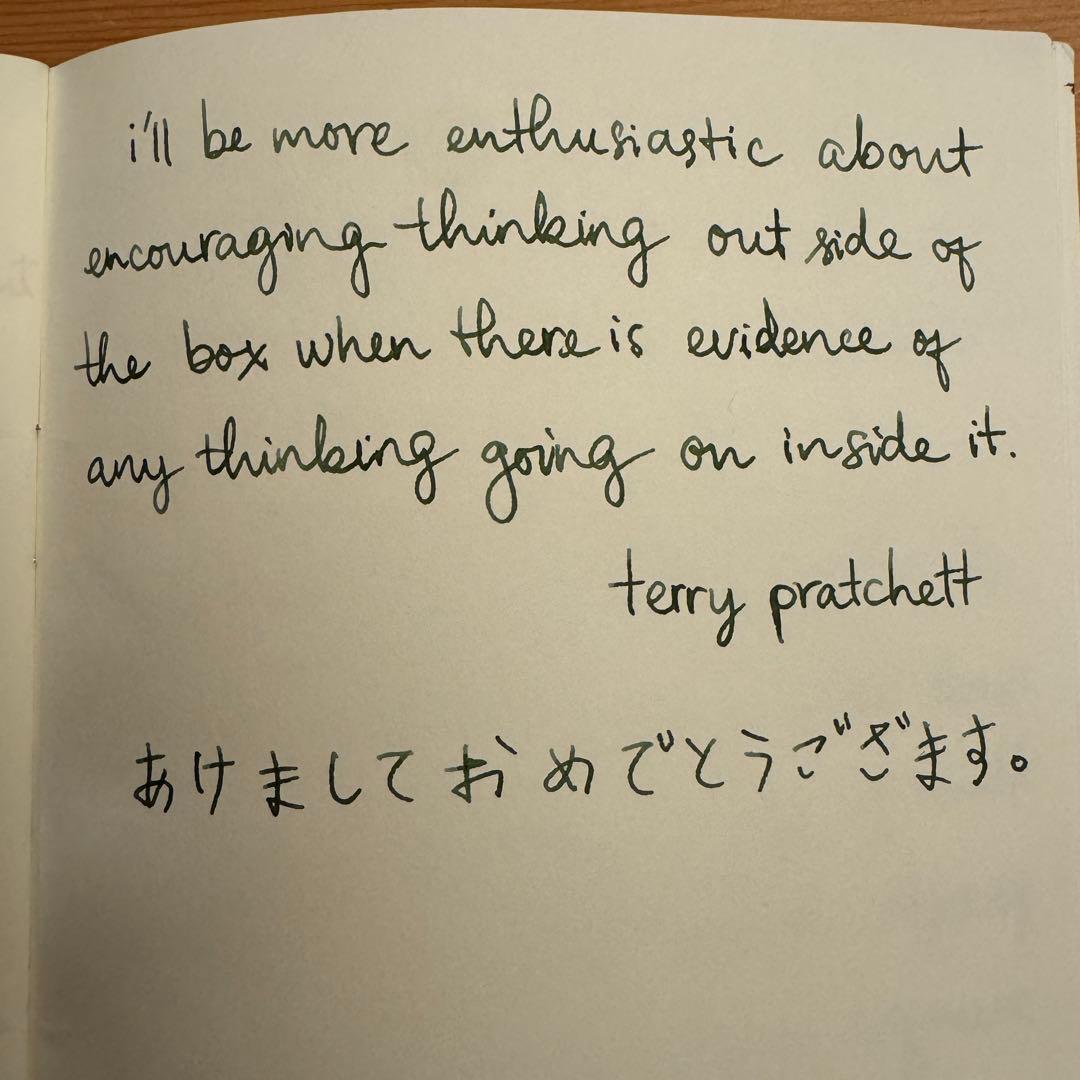 i'll be more enthusiastic about
encouraging thinking out side of
the box when there is evidence of
any thinking going on inside it.
terry pratchett
あけましておめでとうございます。